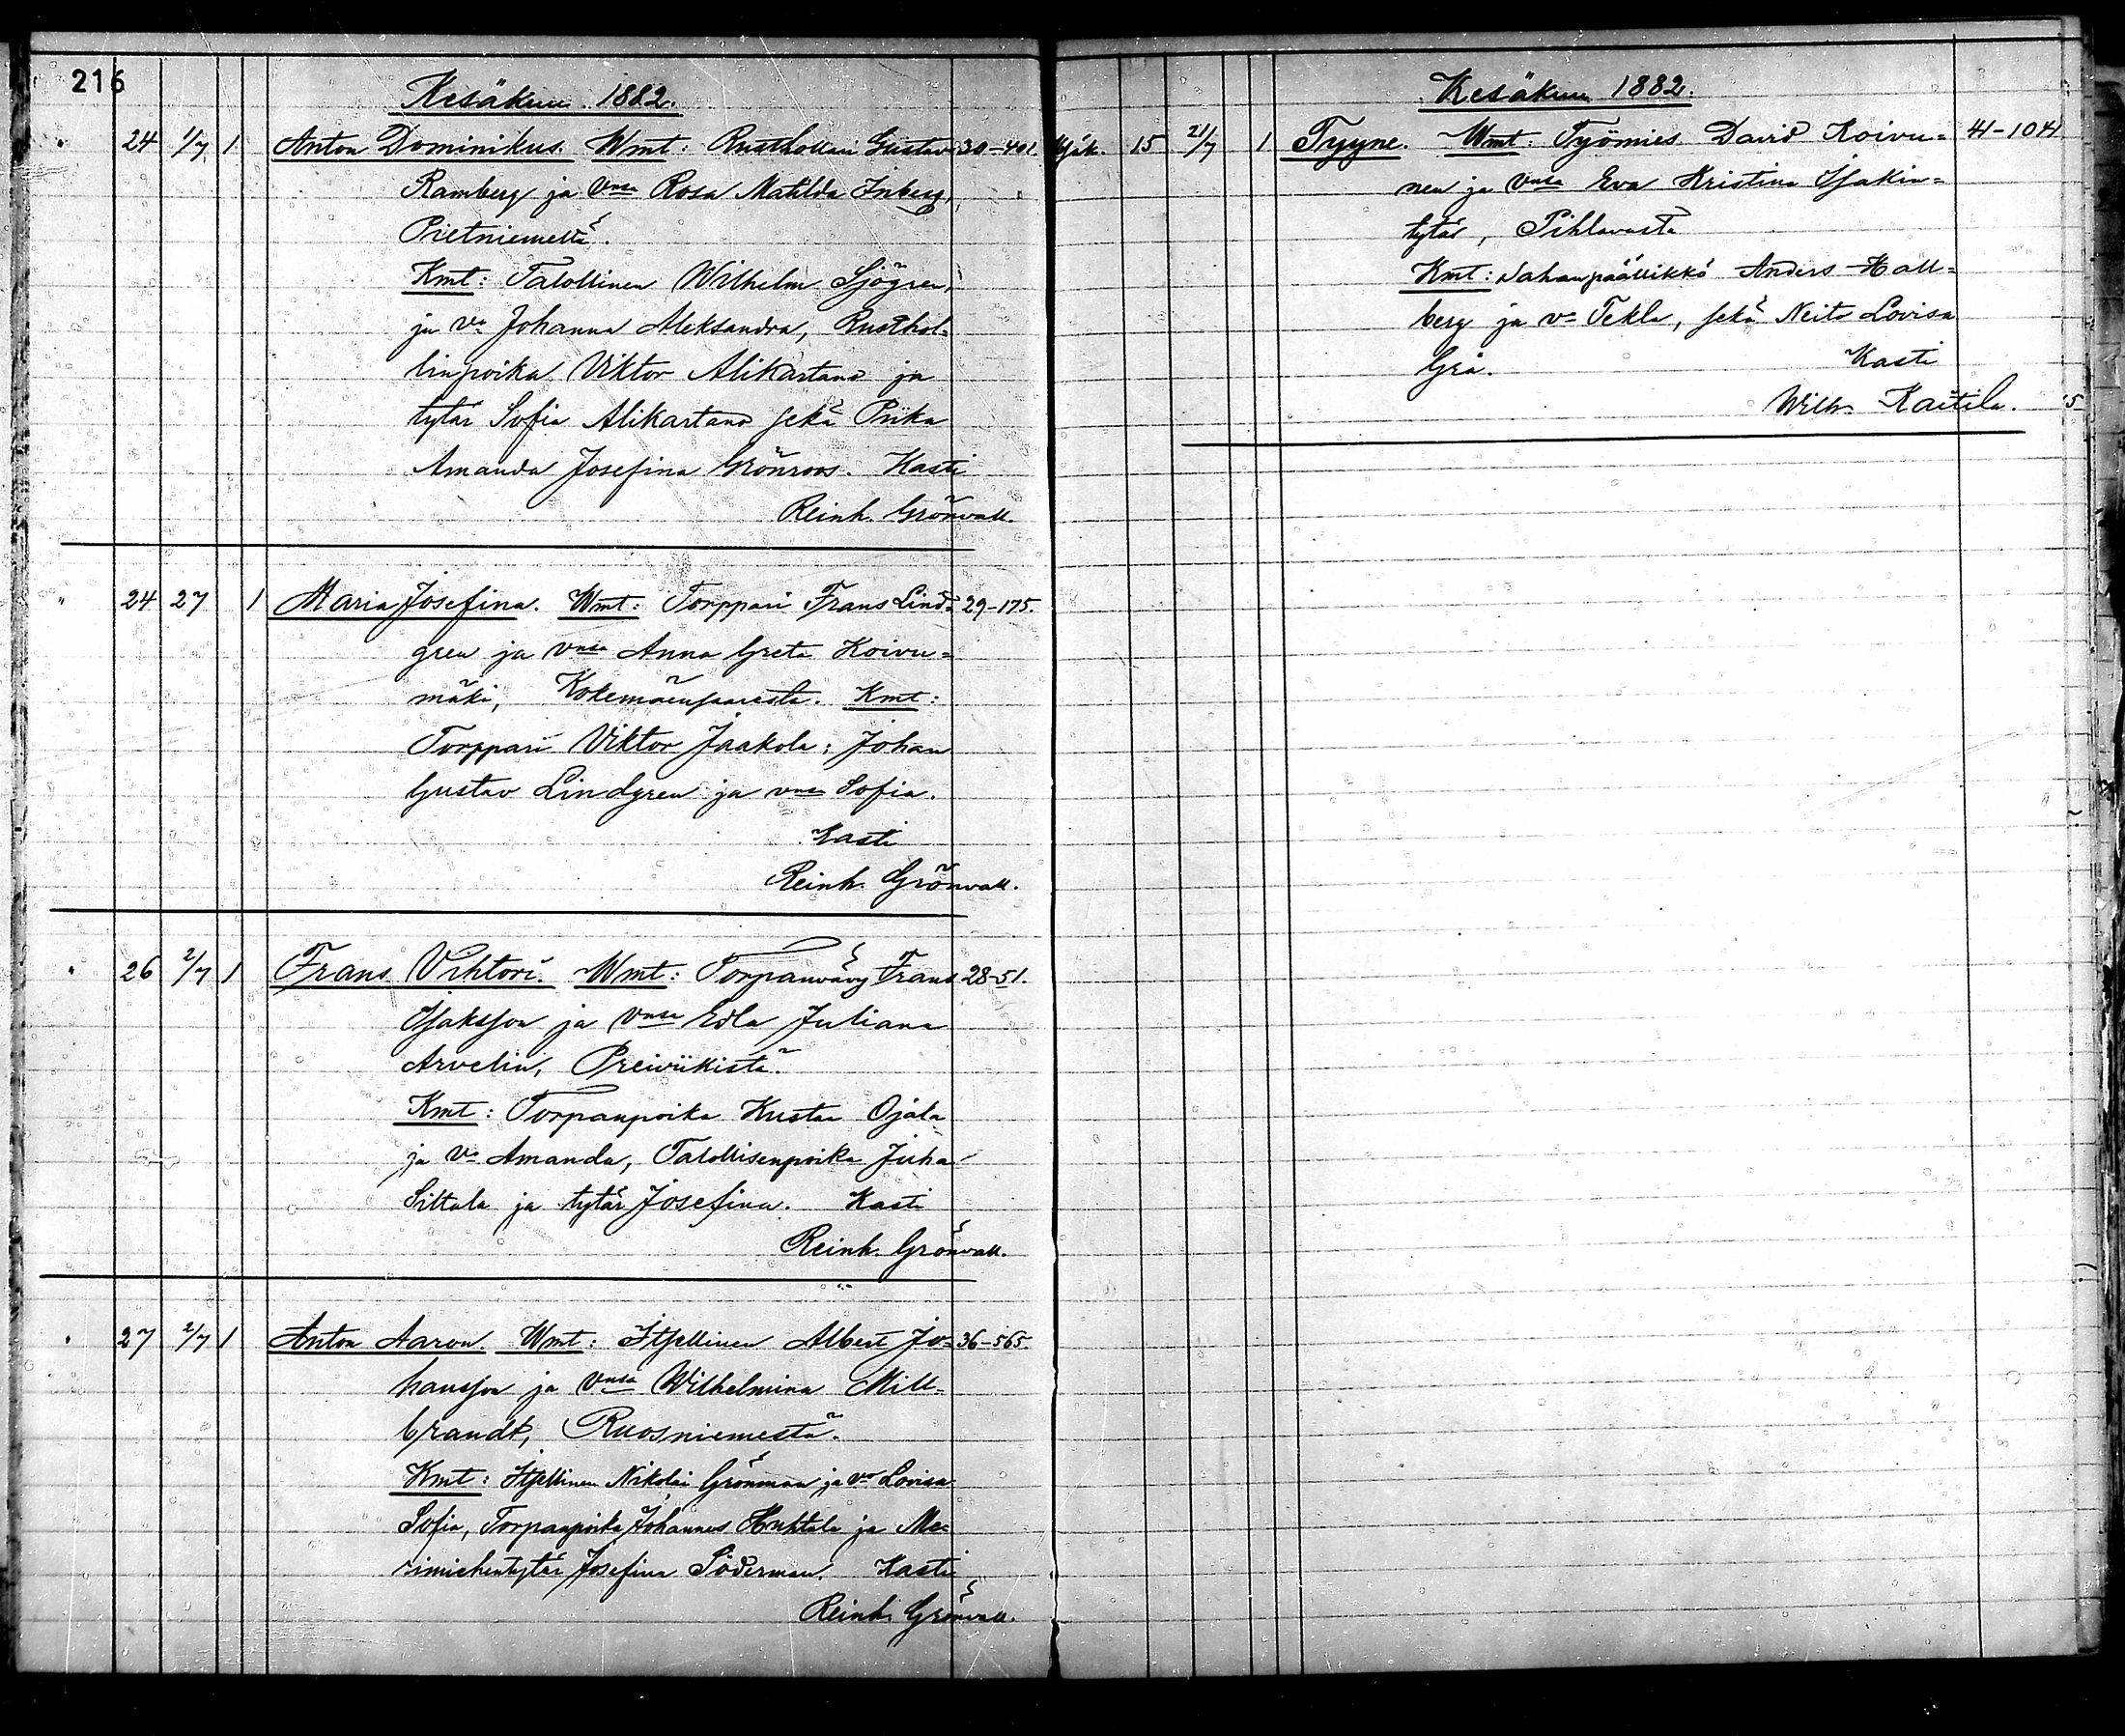 216
Kesäkuu 1882.
" 24 1/7 1 Anton Dominikus. Wmt: Rusthollari Gustav 30-401.
Ramberg ja Vnsa Rosa Matilda Inberg,
Pietniemeltä.
Kmt: Talollinen Wilhelm Sjögren,
ja Va Johanna Aleksandra, Rusthol-
linpoika Viktor Alikartano ja
tytär Sofia Alikartano sekä Piika
Amanda Josefina Grönroos. Kasti
Reinh. Grönvall.
" 24 27 1 Maria Josefina. Wmt: Torppari Frans Lind= 29-175.
gren ja vnsa Anna Greta Koivu=
mäki, Kokemäensaaresta. Kmt:
Torppari Viktor Jaakola; Johan
Gustav Lindgren ja vnsa Sofia.
Kasti
Reinh. Grönvall.
" 26 2/7 1 Frans Vihtori. Wmt: Torpanvävy Frans 28-51.
Isaksson ja Vnsa Edla Juliana
Arvelin, Preiviikistä.
Kmt: Torpanpoika Kustaa Ojala
ja Va Amanda, Talollisenpoika Juha
Siltala ja tytär Josefina. Kasti
Reinh. Grönvall.
" 27 2/7 1 Anton Aaron. Wmt: Itsellinen Albert Jo= 36-565.
hansson ja Vnsa Wilhelmina Mill-
brandt, Ruosniemestä.
Kmt: Itsellinen Nikolai Grönman ja va Lovisa
Sofia, Torpanpoika Johannes Huhtala ja Me-
rimiehentytär Josefina Söderman. Kasti
Reinh. Grönvall.
Kesäkuu 1882.
15 21/7 1 Tyyne. Wmt: Työmies David Koivu= 41-1041
nen ja Vnsa Eva Kristina Isakin=
tytär, Pihlavasta
Kmt: Sahanpäällikkö Anders Hall=
berg ja va Tekla, sekä Neito Lovisa
Grå. Kasti
Wilh. Kaitila.